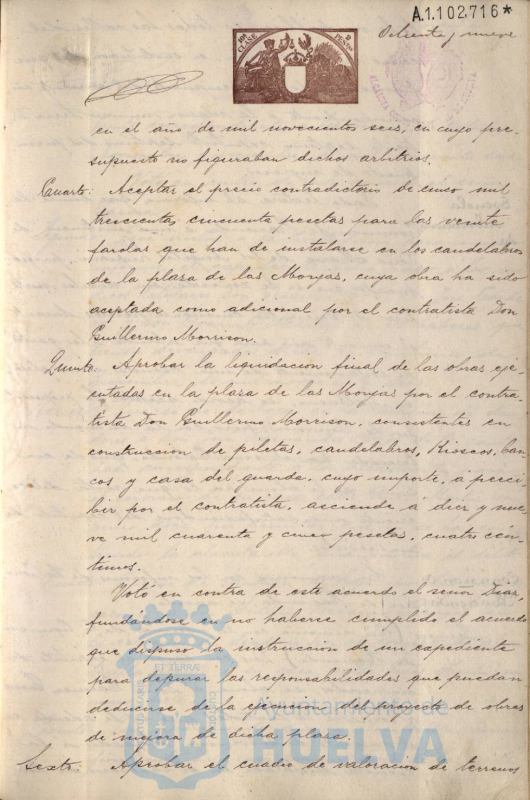 A.1.102,716*
10ª CLASE
2 PESETAS
Ochenta y nueve
en el año de mil novecientos seis, en cuyo pre-
supuesto no figuraban dichos arbitrios.
Cuarto: Aceptar el precio contradictorio de cinco mil
trescientas cincuenta pesetas para las veinte
farolas que han de instalarse en los candelabros
de la plaza de las Monjas, cuya obra ha sido
aceptada como adicional por el contratista Don
Guillermo Morrison.
Quinto: Aprobar la liquidacion final de las obras eje-
cutadas en la plaza de las Monjas por el contra-
tista Don Guillermo Morrison, consistentes en
construccion de piletas, candelabros, Kioscos, ban-
cos y casa del guarda, cuyo importe, á perci-
bir por el contratista, asciende á diez y nue-
ve mil cuarenta y cinco pesetas, cuatro cén-
timos.
Votó en contra de este acuerdo el señor Diaz,
fundándose en no haberse cumplido el acuerdo
que dispuso la instruccion de un expediente
para depurar las responsabilidades que puedan
deducirse de la ejecucion del proyecto de obras
de mejora de dicha plaza.
Sexto: Aprobar el cuadro de valoracion de terrenos
Ayuntamiento de
HUELVA